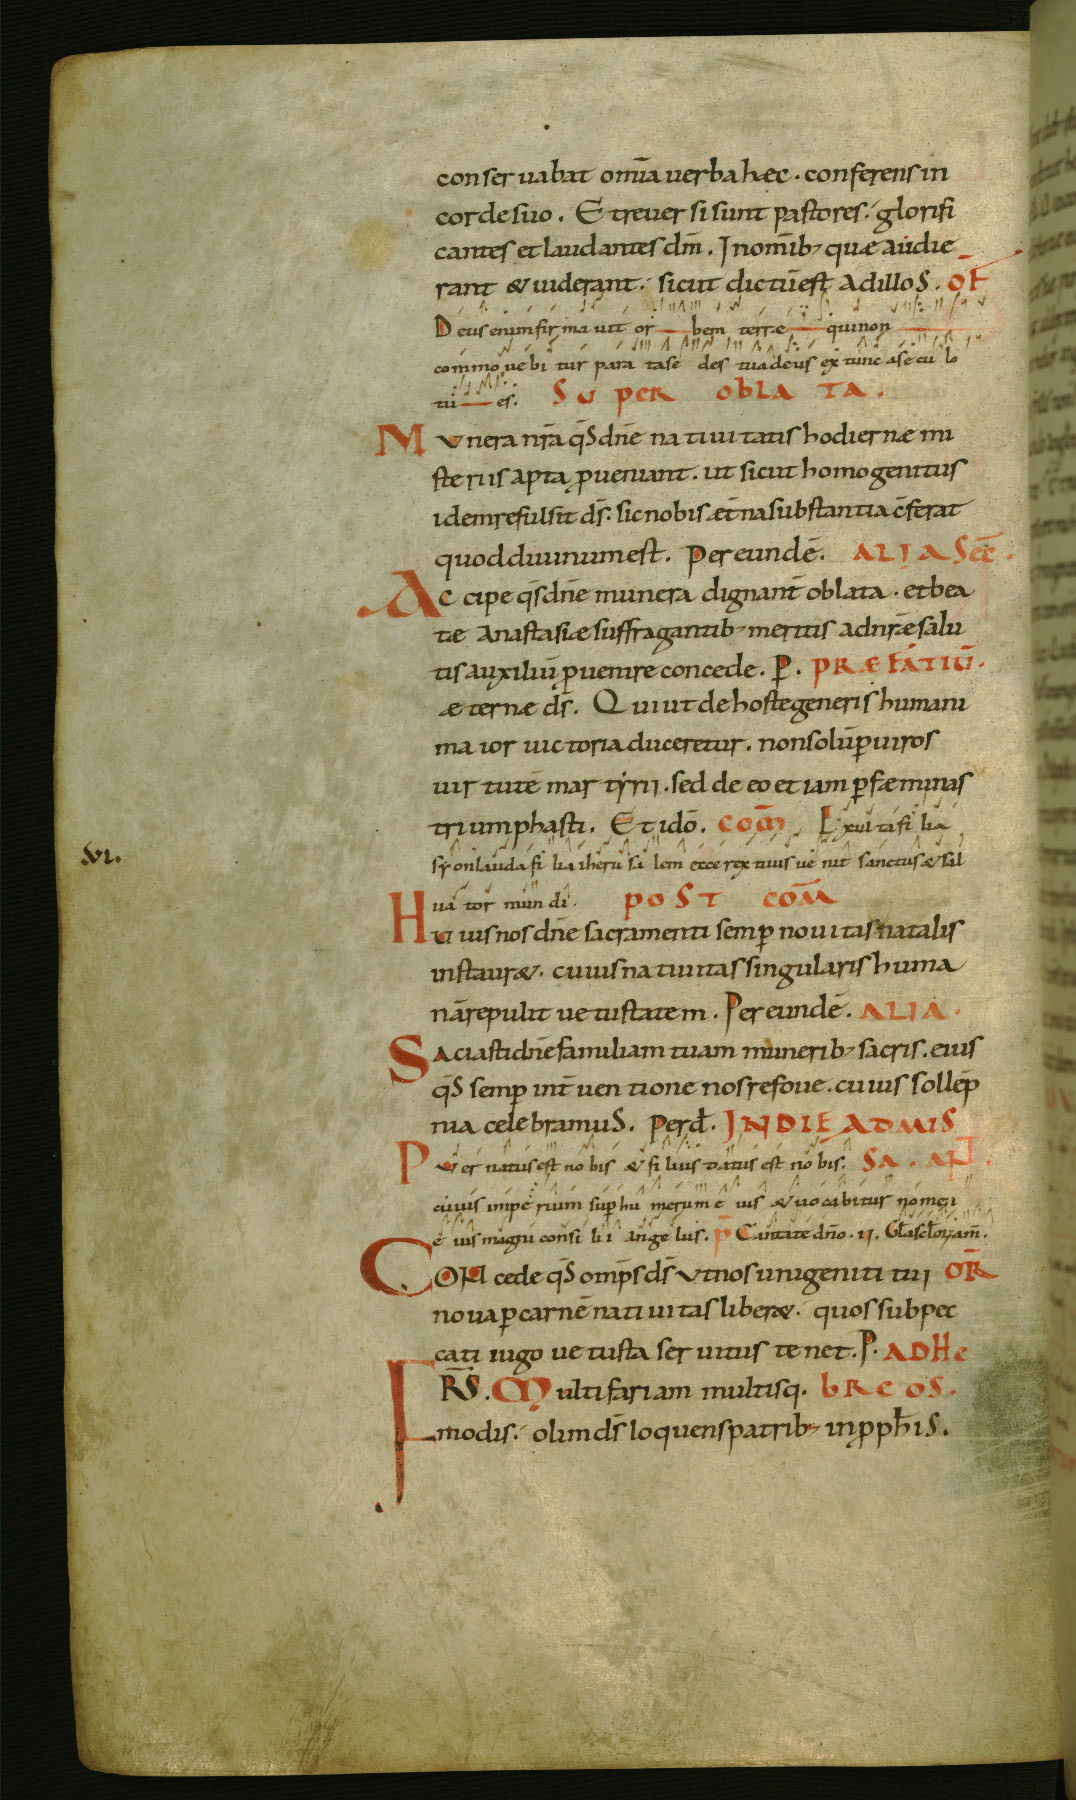 conseruabat om̄ia uerba hec · conferens in
corde suo . Et reuersi sunt pastores · glorifi
cantes et laudantes dm̄ . In om̄ib; quæ audie
rant & uiderant · sicut dictū est ad illos . OF
Deus enim firmauit orbem terræ qui non
commouebitur parata sedes tua deus ex tunc a sęculo
tu es . SUPER OBLATA .
Munera nr̄a qs̄ dn̄e natiuitatis hodiernæ mi
steriis apta ꝓueniant . ut sicut homo genitus
idem refulsit ds̄ . sic nobis æt̄na substantia c̄ferat
quod diuinum est . Per eundē . ALIA SCĒ .
Accipe qs̄ dn̄e munera dignant̄ oblata . et bea
tæ anastasiæ suffragantib; meritis ad nr̄æ salu
tis auxiliū ꝓuenire concede . P . PRÆFATIŪ .
æternæ ds̄ . Qui ut de hoste generis humani
maior uictoria duceretur . non solū ꝑ uiros
uirtutē martyrii . sed de eo etiam ꝑ fæminas
triumphasti . Et idō . COM̄ Exulta filia
syon lauda filia iherusalem ecce rex tuus uenit sanctus & sal
VI.
uator mundi . POST COM̄
Huius nos dn̄e sacramenti semꝑ nouitas natalis
instaur& . cuius natiuitas singularis huma
nā repulit uetustatem . Per eundē . ALIA .
Saciasti dn̄e familiam tuam munerib; sacris . eius
qs̄ semꝑ int̄uentione nos refoue . cuius sollēp
nia celebramus . Per d . IN DIE AD MIS
Puer natus est nobis & filius datus est nobis . SA . AN .
cuius imperium suꝑ humerum eius & uocabitur nomen
eius magni consilii angelus . P̄ Cantate dn̄o . II .
Concede qs̄ omp̄s ds̄ ut nos unigeniti tui OR̄
noua ꝑ carnē natiuitas liber& . quos sub pec
cati iugo uetusta seruitus tenet . P . AD HE
FRS̄ . Multifariam multisq . BREOS .
modis . olim ds̄ loquens patrib; in ꝓph̄is .